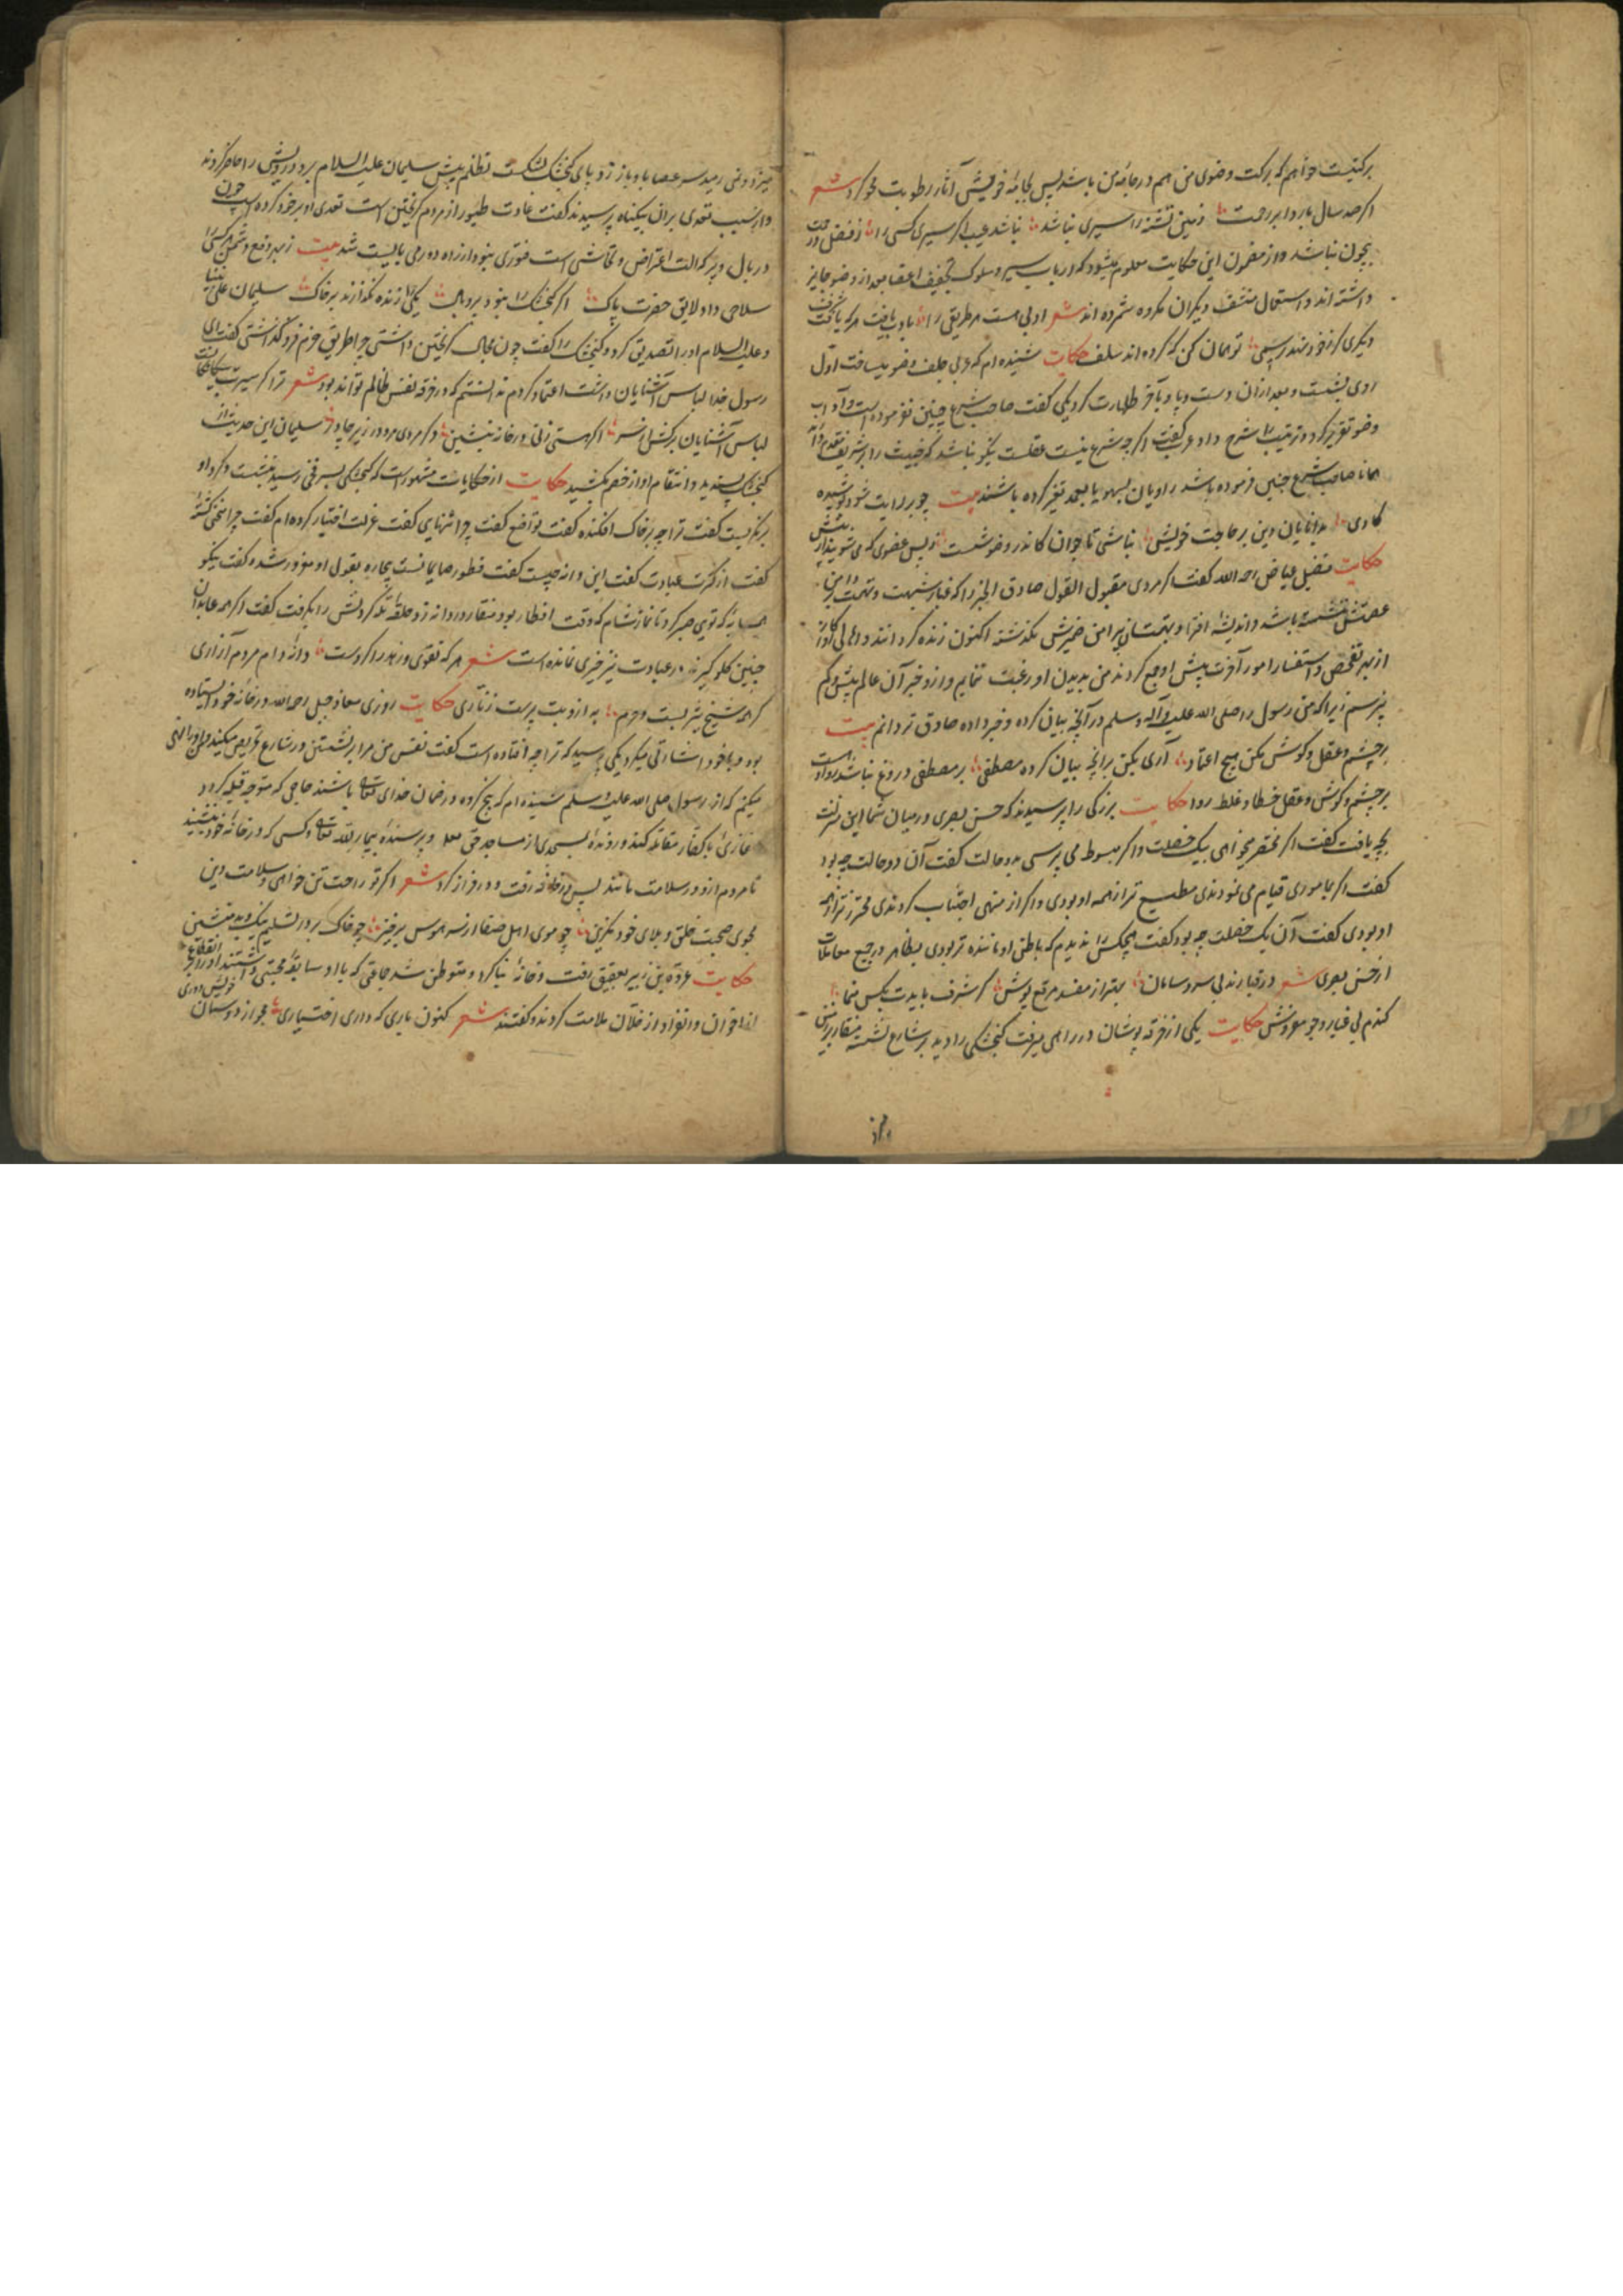 برکتیست خواهم که برکت وضوی من هم در جامهٔ من باشد پس بجامهٔ خویش آثار رطوبت محو کرد شعر
اکر صد سال بارد ابر رحمت زمین تشنه را سیری نباشد نباشد عیب اکر سیری کسی را ز فضل
چون نباشد و از مضمون این حکایت معلوم میشود که در باب سیر و سلوک تخفیف اعضا بعد از وضو جایز
داشته اند و استعمال منشف دیکران مکروه شمرده اند شعر اولی هست هر طریقی را باد بیافت هر که
دیکری کر خود تو همان کن که کرده اند سلف حکایت شنیده ام که عربی جلف وضو میساخت اول
روی بشست و بعد از آن دست و پا و بآخر طهارت کرد یکی کفت صاحب شرع چنین نفرموده است و آداب
وضو تقریر کرد و ترتیب را شرح داد عرب کفت اکرچه شرع نیست عقلست نیکو نباشد که خبیث را بر شریف تقدم
همانا صاحب شرع چنین فرموده باشد راویان بسهو یا بعمد تغیر کرده باشند بیت چو بر رایت شود پوشیده
کاری بدانایان دین بر حاجت خویش نباشی تا جوان کاندر وضو شست پس عضوی که می شویند از پیش
حکایت فضیل عیاض رحمه الله کفت اکر مردی مقبول القول صادق الخبر را که غبار شبهت و تهمت بر دامن
عصمتش ننشسته باشد و اندیشه افترا و بهتان پیرامن ضمیرش نکذشته اکنون زنده کردانند و اهالی
از بهر تفحص و استفسار امور آخرت پیش او جمع کردند من بدیدن او رغبت ننمایم و از و خبر آن عالم بیش و کم
نپرسم زیرا که من رسول را صلی الله علیه و آله و سلم در آنچه بیان کرده و خبر داده صادق تر دانم بیت
بر چشم و عقل و کوش مکن هیچ اعتماد آری بکن بر آنچه بیان کرده مصطفی بر مصطفی دروغ نباشد روا
بر چشم و کوش و عقل خطا و غلط روا حکایت بزرکی را پرسیدند که حسن بصری در میان شما این منزلت
بچه یافت کفت اکر مختصر میخواهی بیک خصلت و اکر مبسوط می پرسی بدو حالت کفت آن دو حالت چه بود
کفت اکر بماموری قیام می نمودندی مطیع تر از همه او بودی و اکر از منهی اجتناب کردندی محترزتر از همه
او بودی کفت آن یک خصلت چه بود کفت هیچکس را ندیدم که باطن او ماننده تر بودی بظاهر در جمیع معاملات
از حسن بصری شعر در قبا رند بی سر و سامان بهتر از مفسد مرقع پوش کر شرف بایدت بکس منما
کندم بی غبار و جو مفروش حکایت یکی از خرقه پوشان در راهی میرفت کنجشکی را دید بر شارع نشسته منقار بر زمین
میزد و نمی رمید سر عصا باو باز زد پای کنجشک بشکست تظلم پیش سلیمان علیه السلام برد درویش را حاضر کردند
و از سبب تعدی بر آن بیکناه پرسیدند کفت عادت طیور از مردم کریختن است تعدی او بر خود کرده است چون
در بال و پر که آلت اعتراض و تحاشی است فتوری نبود از راه دور می بایست شد بیت ز بهر دفع دشمن هر کسی را
سلاحی داد لایق حضرت پاک اکر کنجشک را نبود پر و بال یکی را زنده نکذارند بر خاک سلیمان علی نبینا
و علیه السلام او را تصدیق کرد و کنجشک را کفت چون مجال کریختن داشتی چرا طریق حزم فرو کذاشتی کفت ای
رسول خدا لباس آشنایان داشت اعتماد کردم ندانستم که در خرقه نفس ظالم تواند بود شعر ترا کر سیرت بیکانکانست
لباس آشنایان برکش از سر اکر هستی زنی در خانه بنشین و کر مردی مرو در زیر چادر سلیمان این حدیث از
کنجشک پسندید و انتقام او از خصم بکشید حکایت از حکایات مشهور است که کنجشکی بسر فخی رسید بنشست و کرد او
برنکریست کفت ترا چه بر خاک افکنده کفت تواضع کفت چرا تنهایی کفت عزلت اختیار کرده ام کفت چرا منحنی کشته
کفت از کثرت عبادت کفت این دانه چیست کفت فطور صایمانست بیچاره بقول او مغرور شده کفت نیکو
همسایهٔ که تویی صبر کرد تا نماز شام که وقت افطار بود منقار در دانه زد حلقهٔ تله کردنش را بکرفت کفت اکر همه عابدان
چنین کلو کیرند در عبادت نیز خیری نمانده است شعر هر که تقوی و زهد را کردست دانه و دام مردم آزاری
کر همه شیخ یثربست و حرم به ازو بت پرست زناری حکایت روزی معاذ جبل رحمه الله در خانهٔ خود ایستاده
بود و با خود اشارتی میکرد یکی پرسید که ترا چه افتاده است کفت نفس من مرا بر نشستن در شارع تحریص میکند و من او را نهی
میکنم که از رسول صلی الله علیه و سلم شنیده ام که پنج کروه در ضمان خدای تعالی باشند حاجی که متوجه قبله کردد
غازئ با کفار مقاتله کند و روندهٔ بمسجدی از مساجد حق تعالی و پرسندهٔ بیمار لله تعالی و کسی که در خانهٔ خود بنشیند
تا مردم ازو در سلامت مانند پس در خانه رفت و در فراز کرد شعر اکر تو راحت تن خواهی و سلامت دین
مجوی صحبت خلق و بلای خود مکزین چو موی اهل صفا از سر هوس برخیز چو خاک بر در تسلیم نیک و بد بنشین
حکایت عروة بن زبیر بعقیق رفت و خانهٔ بنا کرد و متوطن شد جماعتی که با او سابقهٔ محبتی داشتند او را
از اخوان و تفرد او از خلان ملامت کردند و کفتند شعر کنون باری که داری اختیاری مجو از دوستان خویش دوری